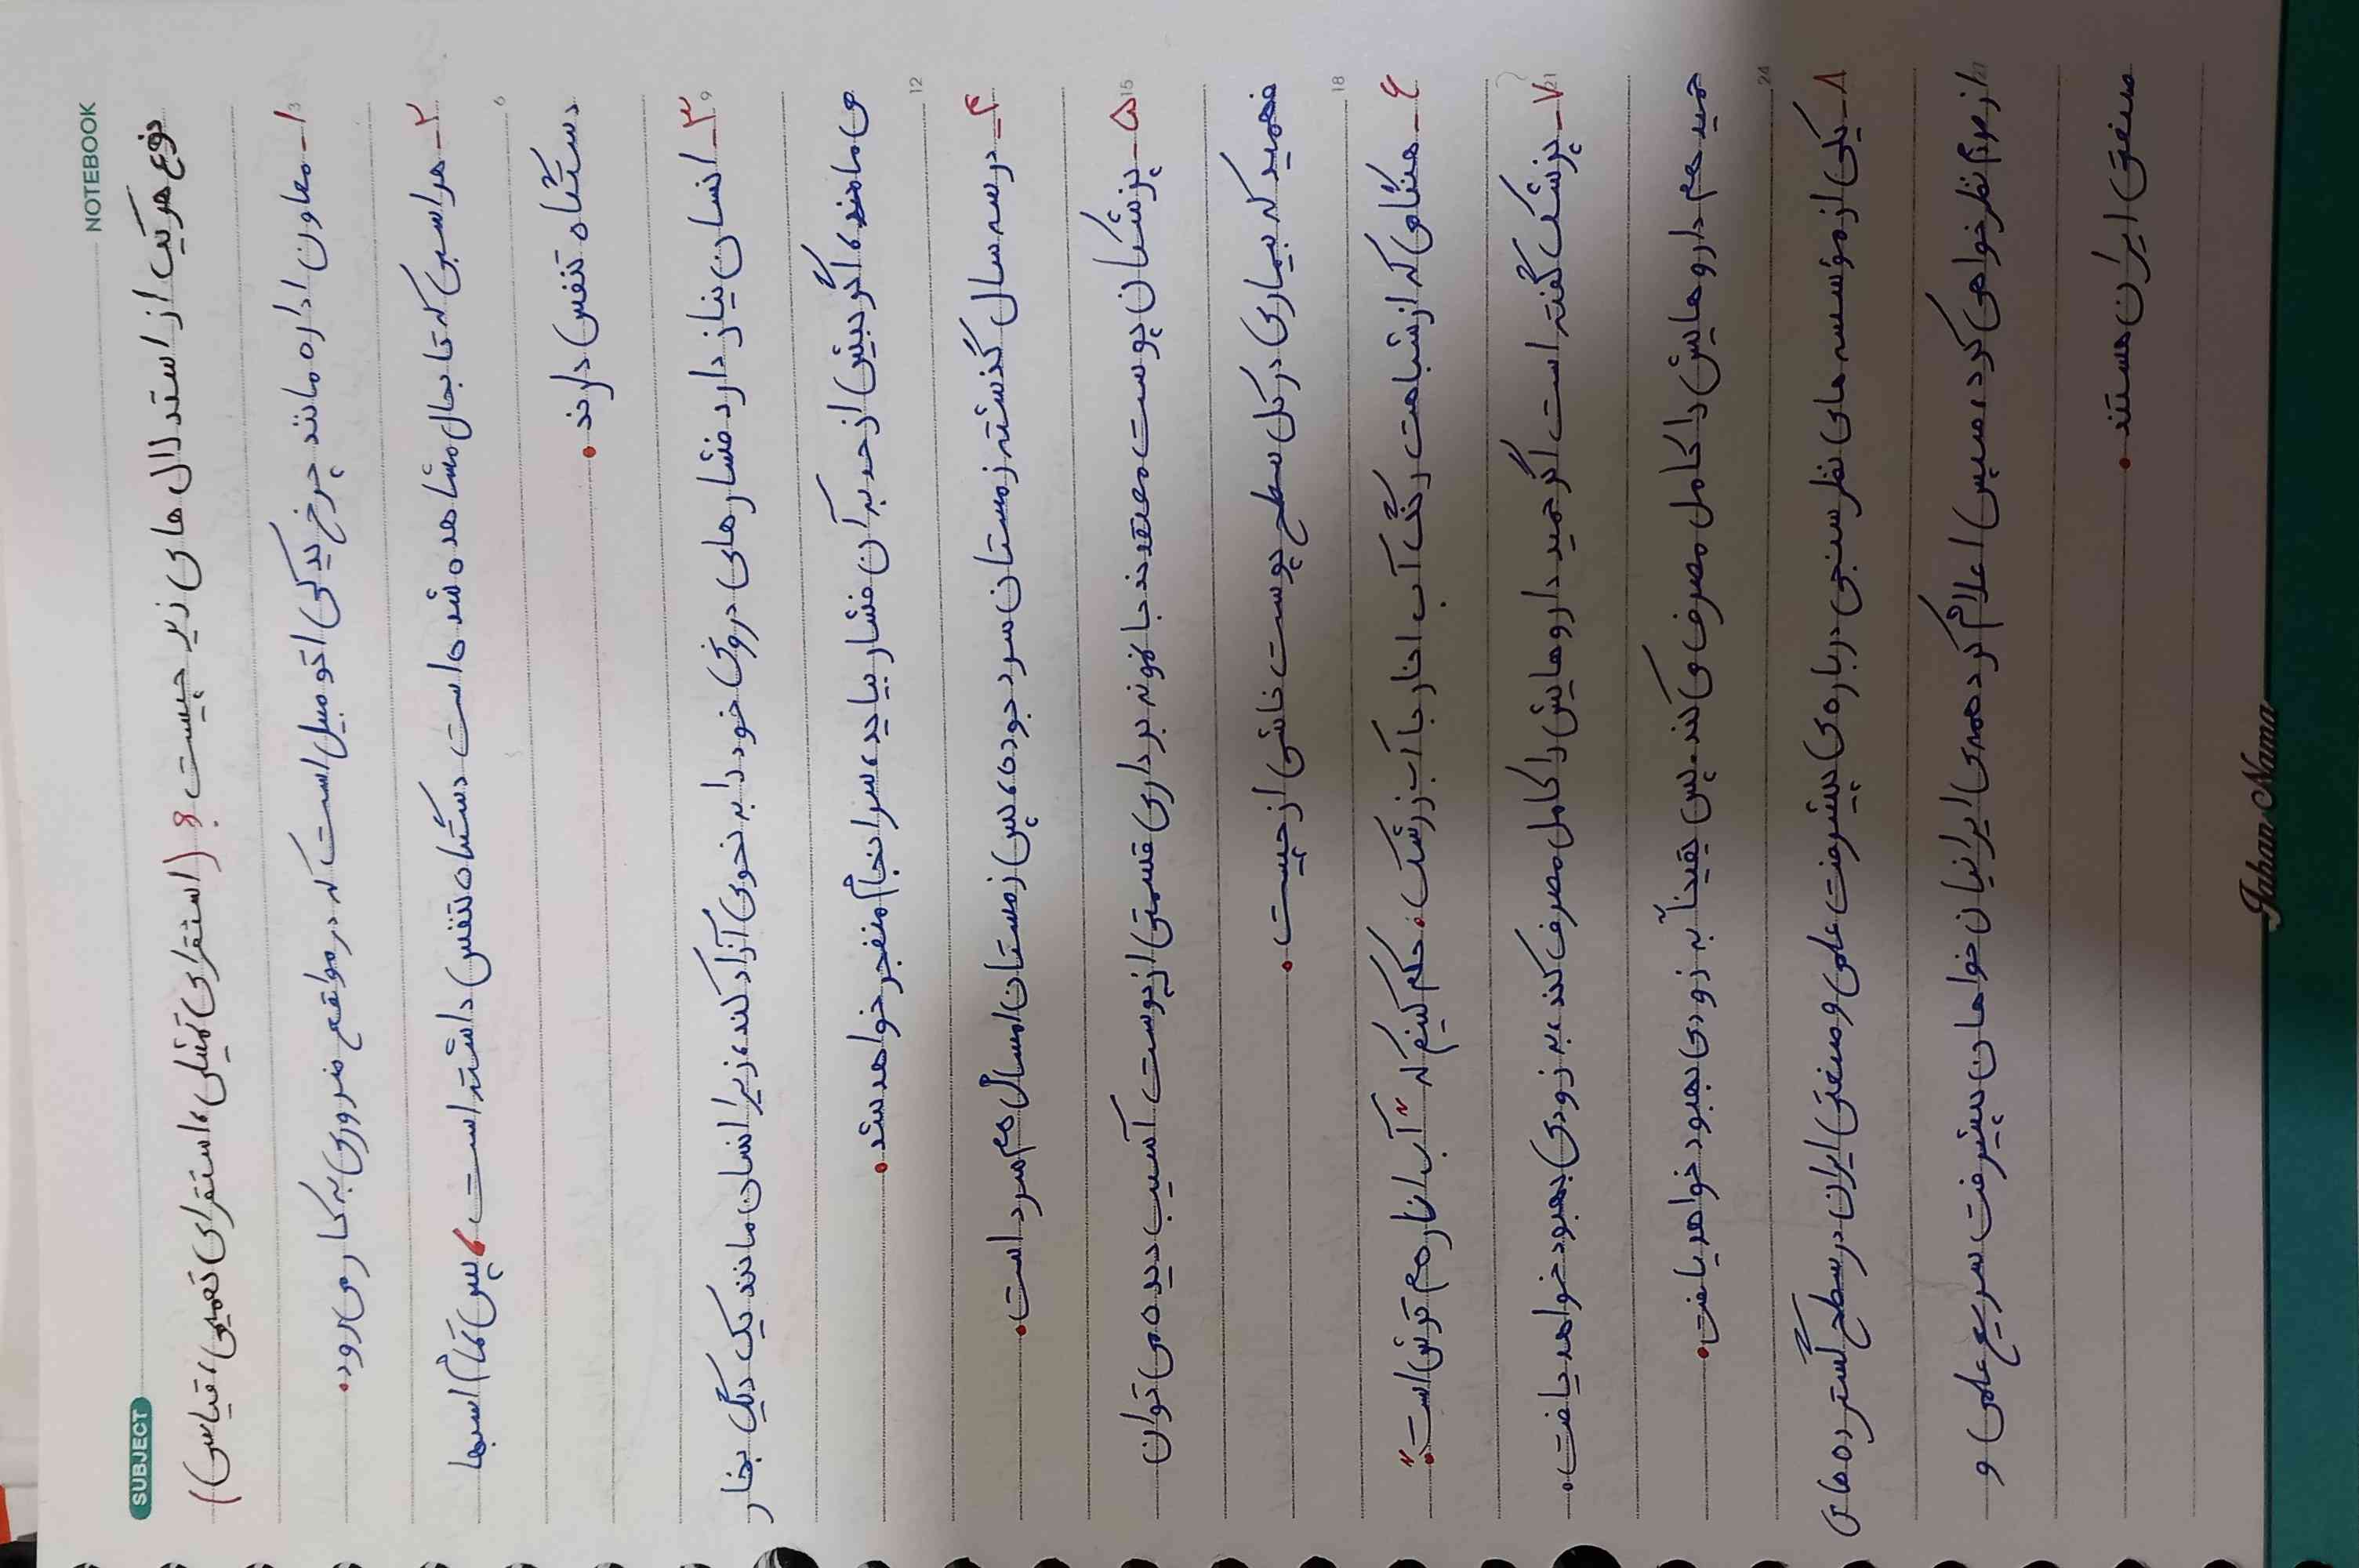 NOTEBOOK
SUBJECT
نوع هریک از استدلال های زیر چیست؟ (استقرای تمثیلی، استقرای تعمیمی، قیاسی)
3
۱- معاون اداره مانند چرخ یدکی اتومبیل است که در مواقع ضروری به کار می رود.
۲- هر اسبی که تا بحال مشاهده شده است دستگاه تنفس داشته است، پس تمام اسبها
6
دستگاه تنفس دارند.
9
۳- انسان نیاز دارد فشارهای درونی خود را به نحوی آزاد کند، زیرا انسان مانند یک دیگ بخار
می ماند، اگر بیش از حد به آن فشار بیاید، سرانجام منفجر خواهد شد.
12
۴- در سه سال گذشته زمستان سرد بوده، پس زمستان امسال هم سرد است.
15
۵- پزشکان پوست معتقدند با نمونه برداری قسمتی از پوست آسیب دیده می توان
فهمید که بیماری در کل سطح پوست ناشی از چیست.
18
۶- هنگامی که از شباهت رنگ آب انار با آب زرشک، حکم کنیم که "آب انار هم ترش است".
21
۷- پزشک گفته است اگر حمید داروهایش را کامل مصرف کند، به زودی بهبود خواهد یافت.
حمید هم داروهایش را کامل مصرف می کند. پس یقیناً به زودی بهبود خواهد یافت.
24
۸- یکی از مؤسسه های نظرسنجی درباره ی پیشرفت علمی و صنعتی ایران در سطح گسترده های
27
از مردم نظرخواهی کرد، سپس اعلام کرد همه ی ایرانیان خواهان پیشرفت سریع علمی و
صنعتی ایران هستند.
Jahan Nama